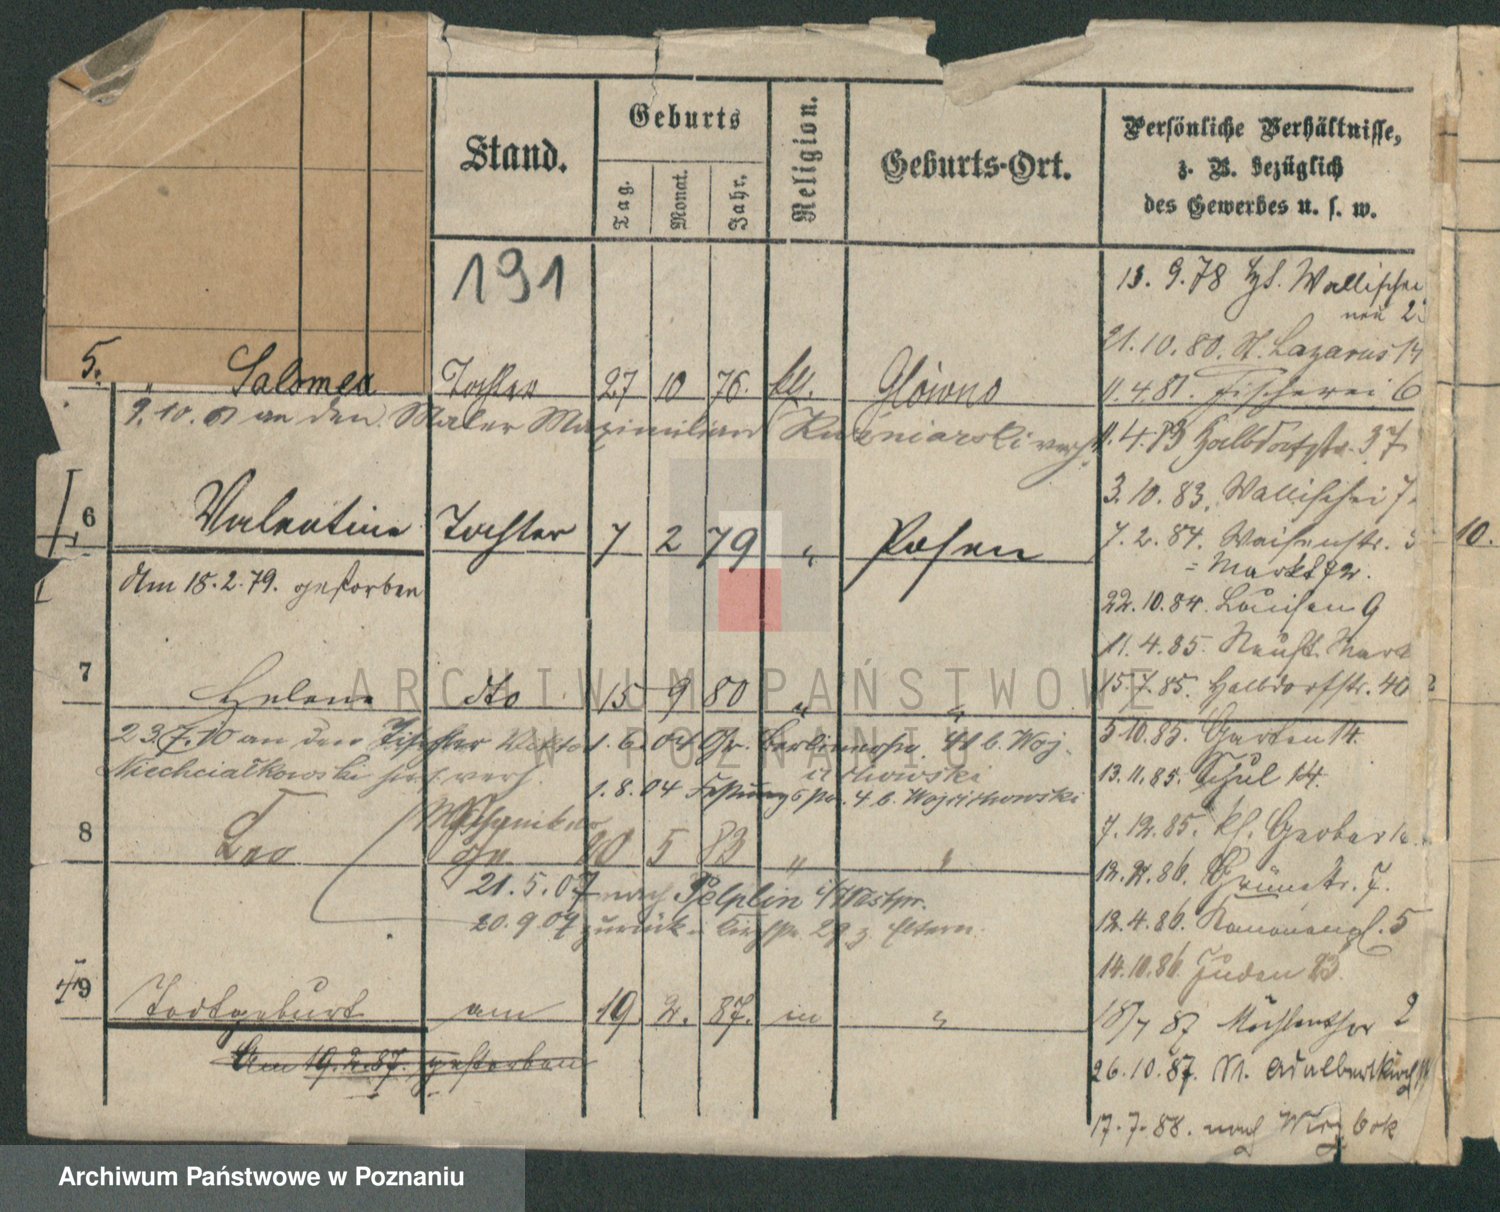 Stand.
Geburts
Tag.
Monat.
Jahr.
Religion.
Geburts-Ort.
Persönliche Verhältnisse,
z. B. bezüglich
des Gewerbes u. s. w.
191
5. " Salomea Tochter 27 10 76. kth. Glowno
9.10. an den Maler Maximilian Kuzniarski verh.
6 Valentine Tochter 7 2 79 " Posen
Am 18.2.79. gestorben
7 Helene dto 15 9 80 " "
23.7.10 an den Tischler
Niechcialkowski hier verh.
1.6.04 Gr. Berlinerstr. 41 b. Woj-
ciechowski
1.8.04 4 b. Wojciechowski
8 Leo Mechaniker
20 5 83 " "
21.5.07 nach Pelplin i/Westpr.
20.9.07 zurück 29 z. Eltern.
9 Todtgeburt am 19. 2. 87. in "
Am 19.2.87. gestorben
13. 9.78 Wallischei
neu
21.10.80. St. Lazarus
11.4.81. Fischerei 6
11.4.83 Halbdorfstr. 37
3.10.83. Wallischei 7
7.2.84. Waisenstr.
= Markt 72.
22.10.84. Louisen 9
11.4.85. Neust. Markt
15.7.85. Halbdorfstr. 40
5.10.85. Garten 14.
13.11.85. Schul 14.
7.12.85. kl. Gerber
Grünestr. 7.
12.4.86. Kanonenpl. 5
14.10.86. Juden 23.
18/7 87 Mühlenthor 2
26.10.87. St. Adalbertkirch
17.7.88. nach
10.
ARCHIWUM PAŃSTWOWE
W POZNANIU
Archiwum Państwowe w Poznaniu